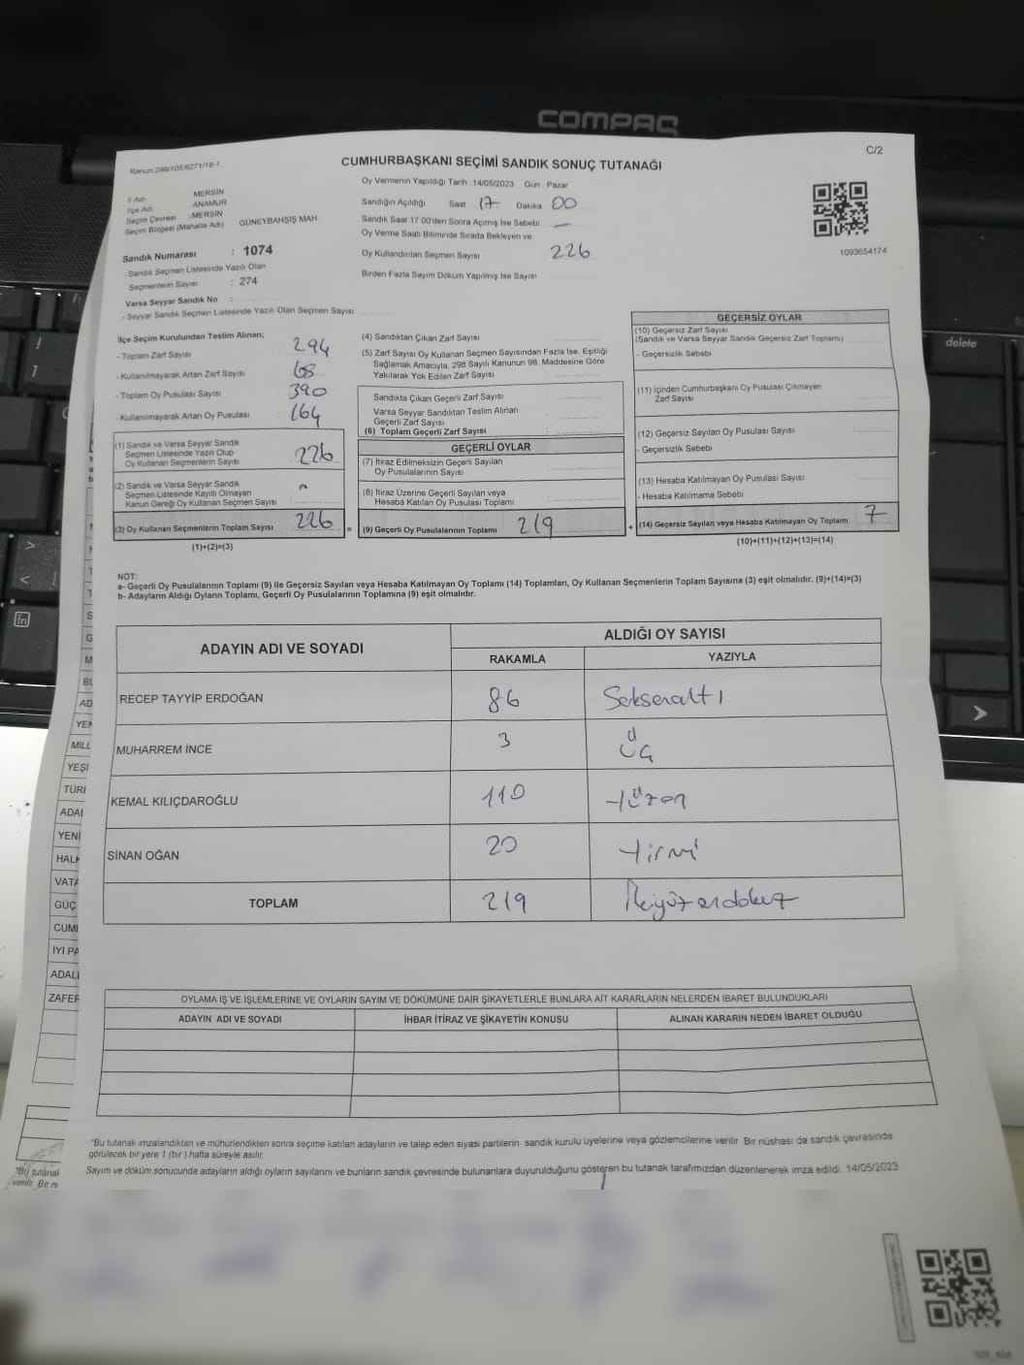 COMPAQ
delete
C/2
CUMHURBAŞKANI SEÇİMİ SANDIK SONUÇ TUTANAĞI
Oy Vermenin Yapıldığı Tarih :14/05/2023 Gün : Pazar
Sandığın Açıldığı Saat 17 Dakika 00
Sandık Saat 17:00'den Sonra Açılmış İse Sebebi —
Oy Verme Saati Bitiminde Sırada Bekleyen ve
Oy Kullandırılan Seçmen Sayısı 226
Birden Fazla Sayım Döküm Yapılmış İse Sayısı
1093654174
İl Adı : MERSİN
İlçe Adı : ANAMUR
Seçim Çevresi : MERSİN
Seçim Bölgesi (Mahalle Adı) : GÜNEYBAHŞİŞ MAH.
Sandık Numarası : 1074
- Sandık Seçmen Listesinde Yazılı Olan
Seçmenlerin Sayısı : 274
Varsa Seyyar Sandık No :
- Seyyar Sandık Seçmen Listesinde Yazılı Olan Seçmen Sayısı
İlçe Seçim Kurulundan Teslim Alınan;
- Toplam Zarf Sayısı 294
- Kullanılmayarak Artan Zarf Sayısı 68
- Toplam Oy Pusulası Sayısı 390
- Kullanılmayarak Artan Oy Pusulası 164
(1) Sandık ve Varsa Seyyar Sandık
Seçmen Listesinde Yazılı Olup
Oy Kullanan Seçmenlerin Sayısı 226
(2) Sandık ve Varsa Seyyar Sandık
Seçmen Listesinde Kayıtlı Olmayan
Kanun Gereği Oy Kullanan Seçmen Sayısı
(3) Oy Kullanan Seçmenlerin Toplam Sayısı 226
(1)+(2)=(3)
(4) Sandıktan Çıkan Zarf Sayısı
(5) Zarf Sayısı Oy Kullanan Seçmen Sayısından Fazla İse, Eşitliği
Sağlamak Amacıyla, 298 Sayılı Kanunun 98. Maddesine Göre
Yakılarak Yok Edilen Zarf Sayısı
Sandıkta Çıkan Geçerli Zarf Sayısı
Varsa Seyyar Sandıktan Teslim Alınan
Geçerli Zarf Sayısı
(6) Toplam Geçerli Zarf Sayısı
GEÇERLİ OYLAR
(7) İtiraz Edilmeksizin Geçerli Sayılan
Oy Pusulalarının Sayısı
(8) İtiraz Üzerine Geçerli Sayılan veya
Hesaba Katılan Oy Pusulası Toplamı
= (9) Geçerli Oy Pusulalarının Toplamı 219
GEÇERSİZ OYLAR
(10) Geçersiz Zarf Sayısı
(Sandık ve Varsa Seyyar Sandık Geçersiz Zarf Toplamı)
- Geçersizlik Sebebi
(11) İçinden Cumhurbaşkanı Oy Pusulası Çıkmayan
Zarf Sayısı
(12) Geçersiz Sayılan Oy Pusulası Sayısı
- Geçersizlik Sebebi
(13) Hesaba Katılmayan Oy Pusulası Sayısı
- Hesaba Katılmama Sebebi
+ (14) Geçersiz Sayılan veya Hesaba Katılmayan Oy Toplamı 7
(10)+(11)+(12)+(13)=(14)
NOT:
a- Geçerli Oy Pusulalarının Toplamı (9) ile Geçersiz Sayılan veya Hesaba Katılmayan Oy Toplamı (14) Toplamları, Oy Kullanan Seçmenlerin Toplam Sayısına (3) eşit olmalıdır. (9)+(14)=(3)
b- Adayların Aldığı Oyların Toplamı, Geçerli Oy Pusulalarının Toplamına (9) eşit olmalıdır.
ADAYIN ADI VE SOYADI
ALDIĞI OY SAYISI
RAKAMLA YAZIYLA
RECEP TAYYİP ERDOĞAN 86 Seksenaltı
MUHARREM İNCE 3 Üç
KEMAL KILIÇDAROĞLU 110 Yüzon
SİNAN OĞAN 20 Yirmi
TOPLAM 219 İkiyüzondokuz
OYLAMA İŞ VE İŞLEMLERİNE VE OYLARIN SAYIM VE DÖKÜMÜNE DAİR ŞİKAYETLERLE BUNLARA AİT KARARLARIN NELERDEN İBARET BULUNDUKLARI
ADAYIN ADI VE SOYADI İHBAR İTİRAZ VE ŞİKAYETİN KONUSU ALINAN KARARIN NEDEN İBARET OLDUĞU
*Bu tutanak imzalandıktan ve mühürlendikten sonra seçime katılan adayların ve talep eden siyasi partilerin sandık kurulu üyelerine veya gözlemcilerine verilir. Bir nüshası da sandık çevresinde
görülecek bir yere 1 (bir) hafta süreyle asılır.
Sayım ve döküm sonucunda adayların aldığı oyların sayılarını ve bunların sandık çevresinde bulunanlara duyurulduğunu gösteren bu tutanak tarafımızdan düzenlenerek imza edildi. 14/05/2023
AD
YEN
MİLL
YEŞİ
TÜRK
ADAL
YENİ
HALK
VATA
GÜÇ
CUM
İYİ PA
ADAL
ZAFER